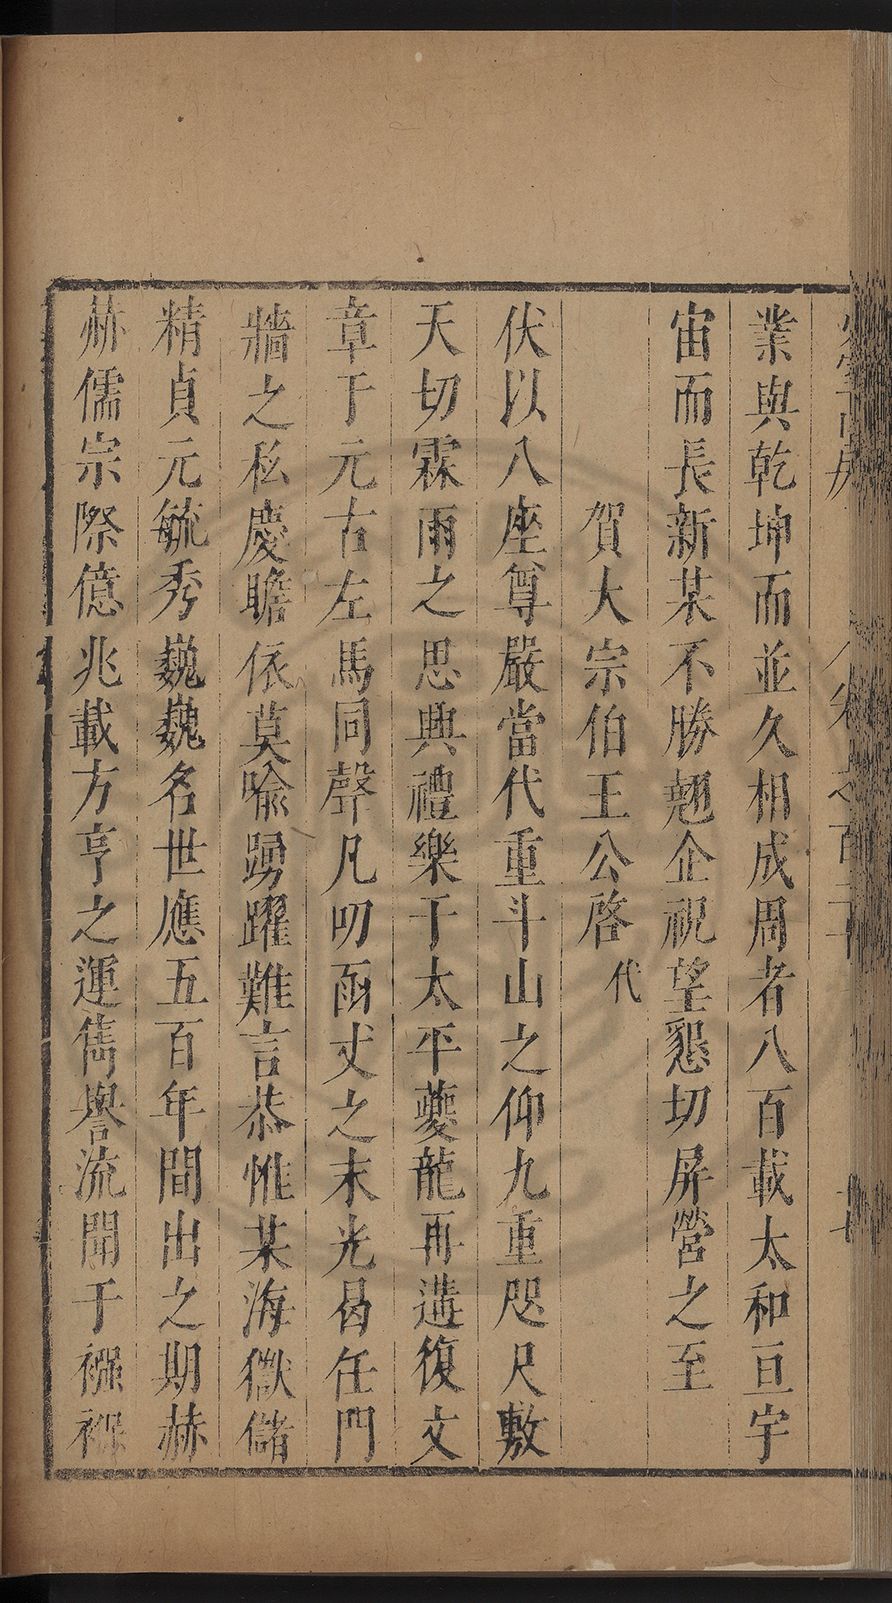 業與乾坤而並久相成周者八百載太和亘宇
宙而長新某不勝翹企祝望懇切屏營之至
賀大宗伯王公啓代
伏以八座尊嚴當代重斗山之仰九重咫尺敷
天切霖雨之思典禮樂于太平夔龍再遘復文
章于元古左馬同聲凡叨函丈之末光曷任門
牆之私慶瞻依莫喻踴躍難言恭惟某海嶽儲
精貞元毓秀巍巍名世應五百年間出之期赫
赫儒宗際億兆載方亨之運雋譽流聞于襁褓